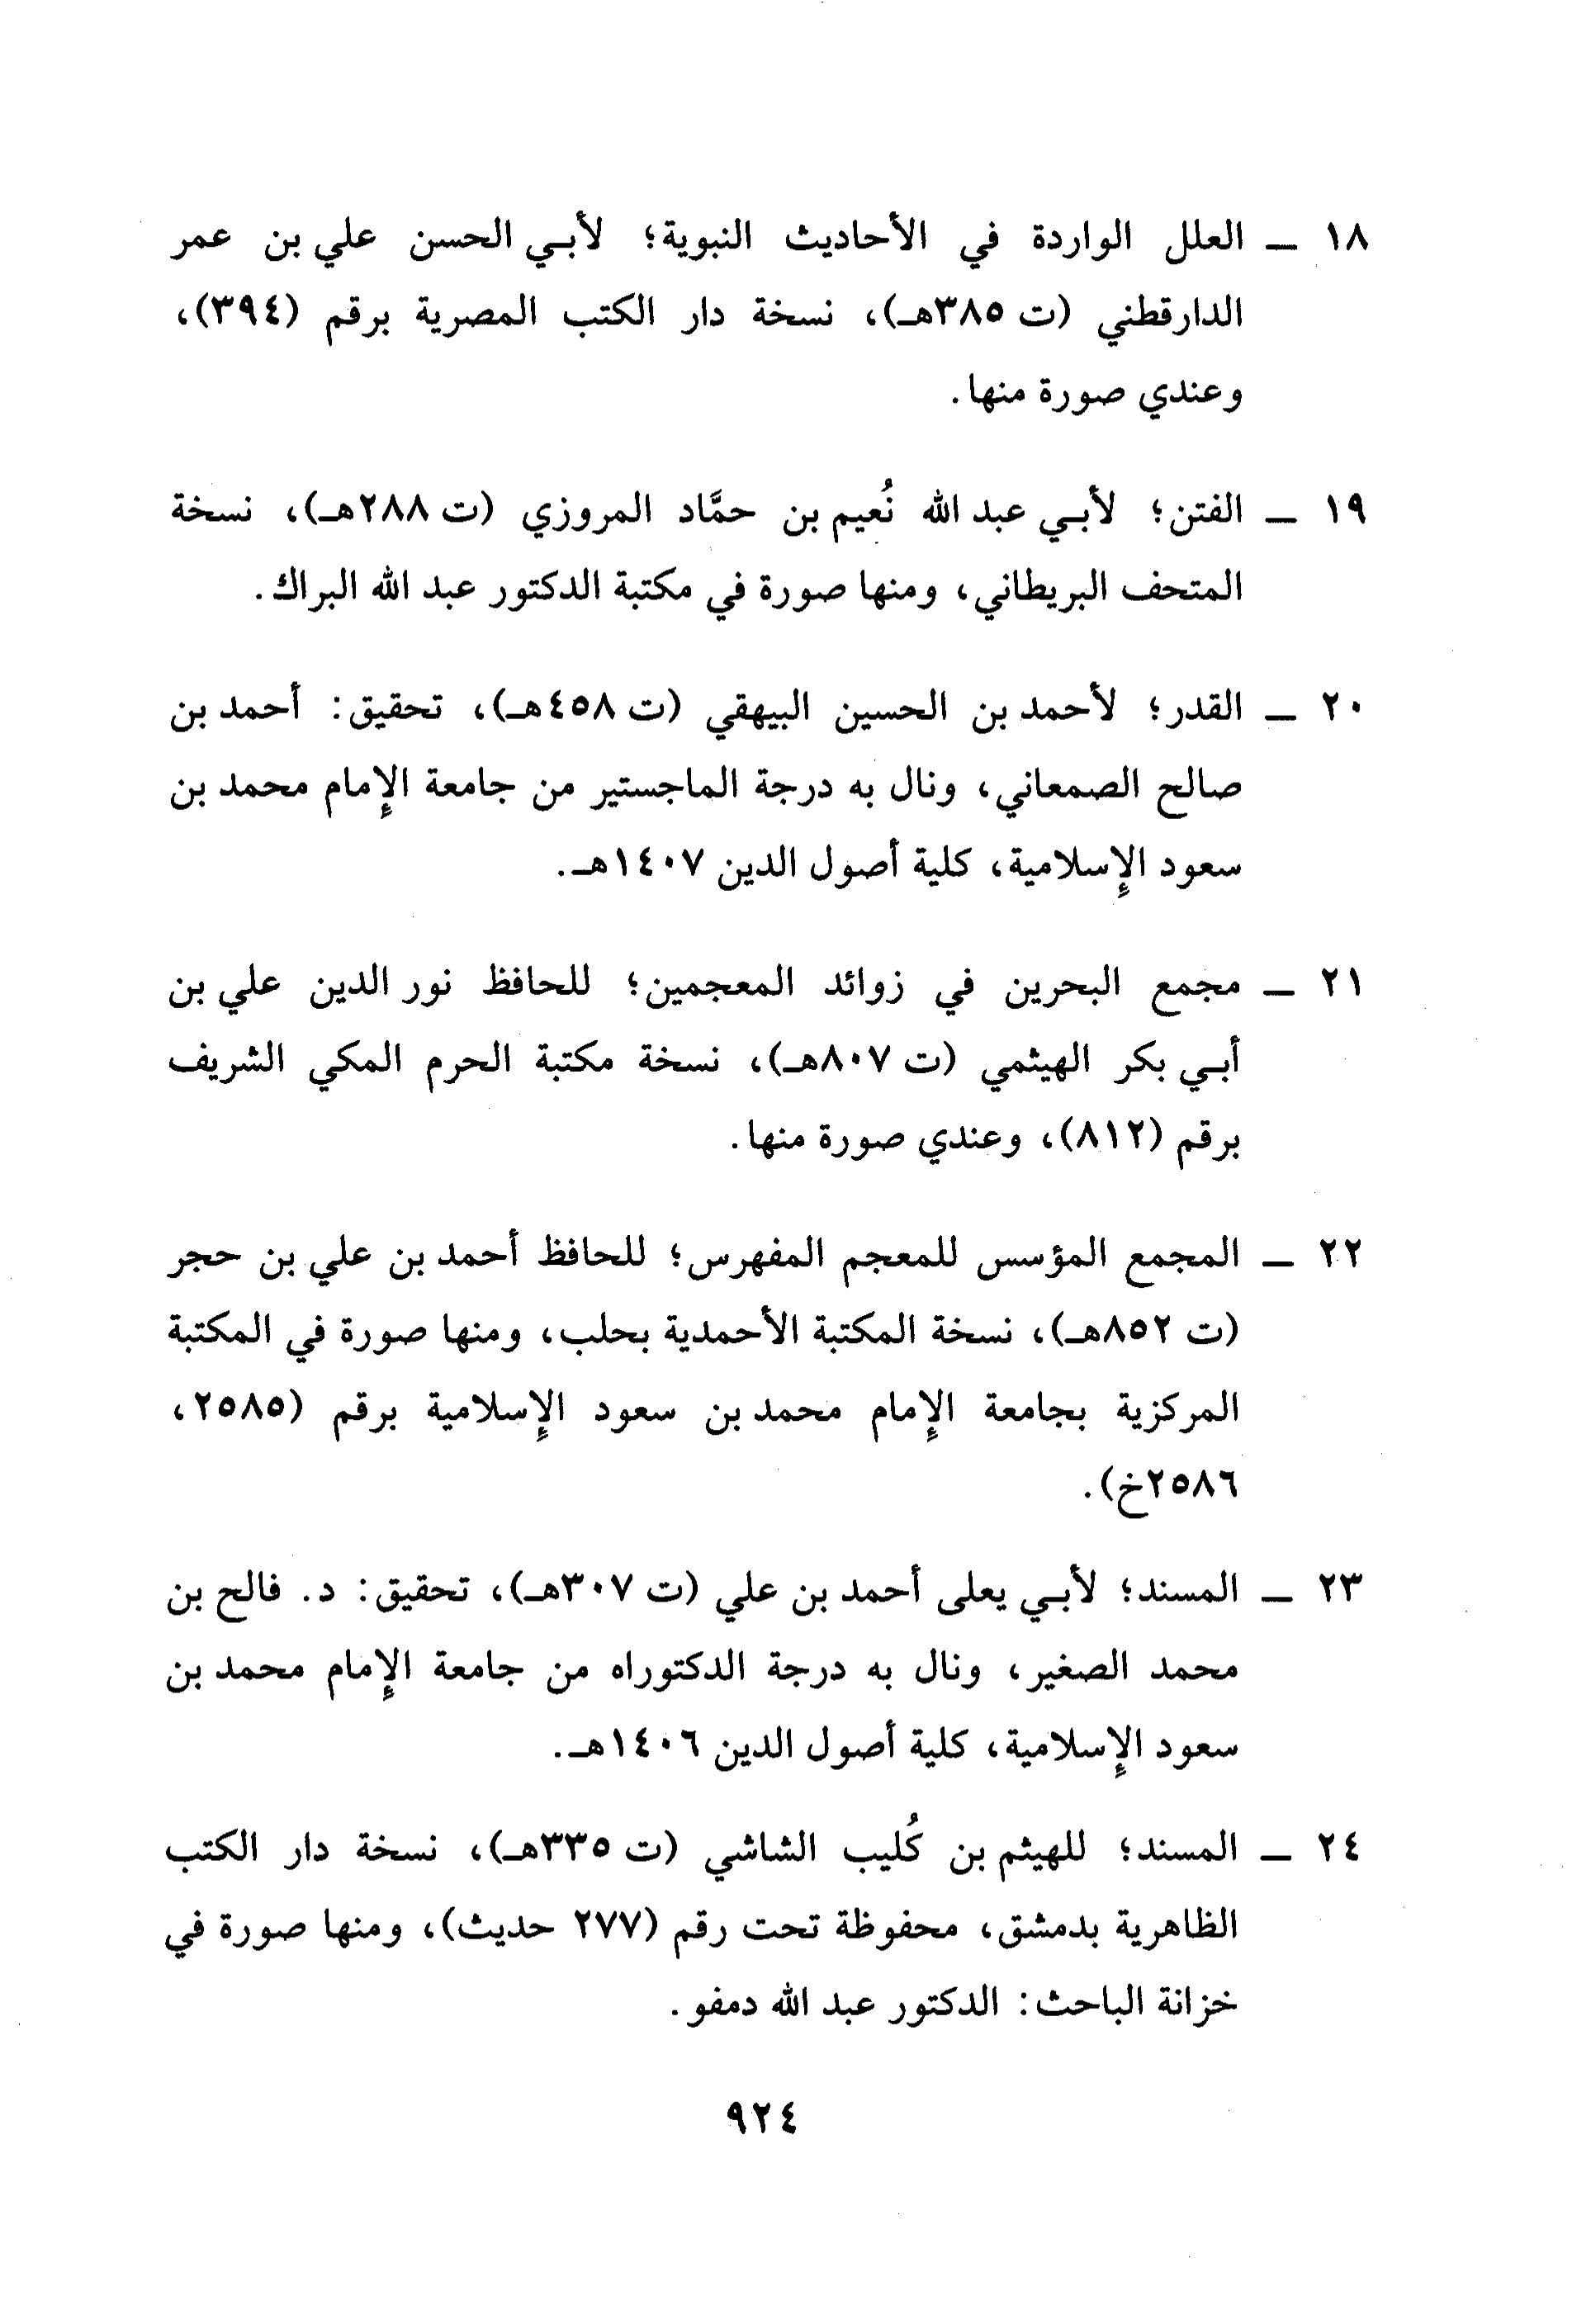 ١٨ ـ العلل الواردة في الأحاديث النبوية؛ لأبي الحسن علي بن عمر
الدارقطني (ت ٣٨٥هـ)، نسخة دار الكتب المصرية برقم (٣٩٤)،
وعندي صورة منها.
١٩ ـ الفتن؛ لأبي عبد الله نُعيم بن حمَّاد المروزي (ت ٢٨٨هـ)، نسخة
المتحف البريطاني، ومنها صورة في مكتبة الدكتور عبد الله البراك.
٢٠ ـ القدر؛ لأحمد بن الحسين البيهقي (ت ٤٥٨هـ)، تحقيق: أحمد بن
صالح الصمعاني، ونال به درجة الماجستير من جامعة الإمام محمد بن
سعود الإسلامية، كلية أصول الدين ١٤٠٧هـ.
٢١ ـ مجمع البحرين في زوائد المعجمين؛ للحافظ نور الدين علي بن
أبي بكر الهيثمي (ت ٨٠٧هـ)، نسخة مكتبة الحرم المكي الشريف
برقم (٨١٢)، وعندي صورة منها.
٢٢ ـ المجمع المؤسس للمعجم المفهرس؛ للحافظ أحمد بن علي بن حجر
(ت ٨٥٢هـ)، نسخة المكتبة الأحمدية بحلب، ومنها صورة في المكتبة
المركزية بجامعة الإمام محمد بن سعود الإسلامية برقم (٢٥٨٥،
٢٥٨٦خ).
٢٣ ـ المسند؛ لأبي يعلى أحمد بن علي (ت ٣٠٧هـ)، تحقيق: د. فالح بن
محمد الصغير، ونال به درجة الدكتوراه من جامعة الإمام محمد بن
سعود الإسلامية، كلية أصول الدين ١٤٠٦هـ.
٢٤ ـ المسند؛ للهيثم بن كُليب الشاشي (ت ٣٣٥هـ)، نسخة دار الكتب
الظاهرية بدمشق، محفوظة تحت رقم (٢٧٧ حديث)، ومنها صورة في
خزانة الباحث: الدكتور عبد الله دمفو.
٩٢٤